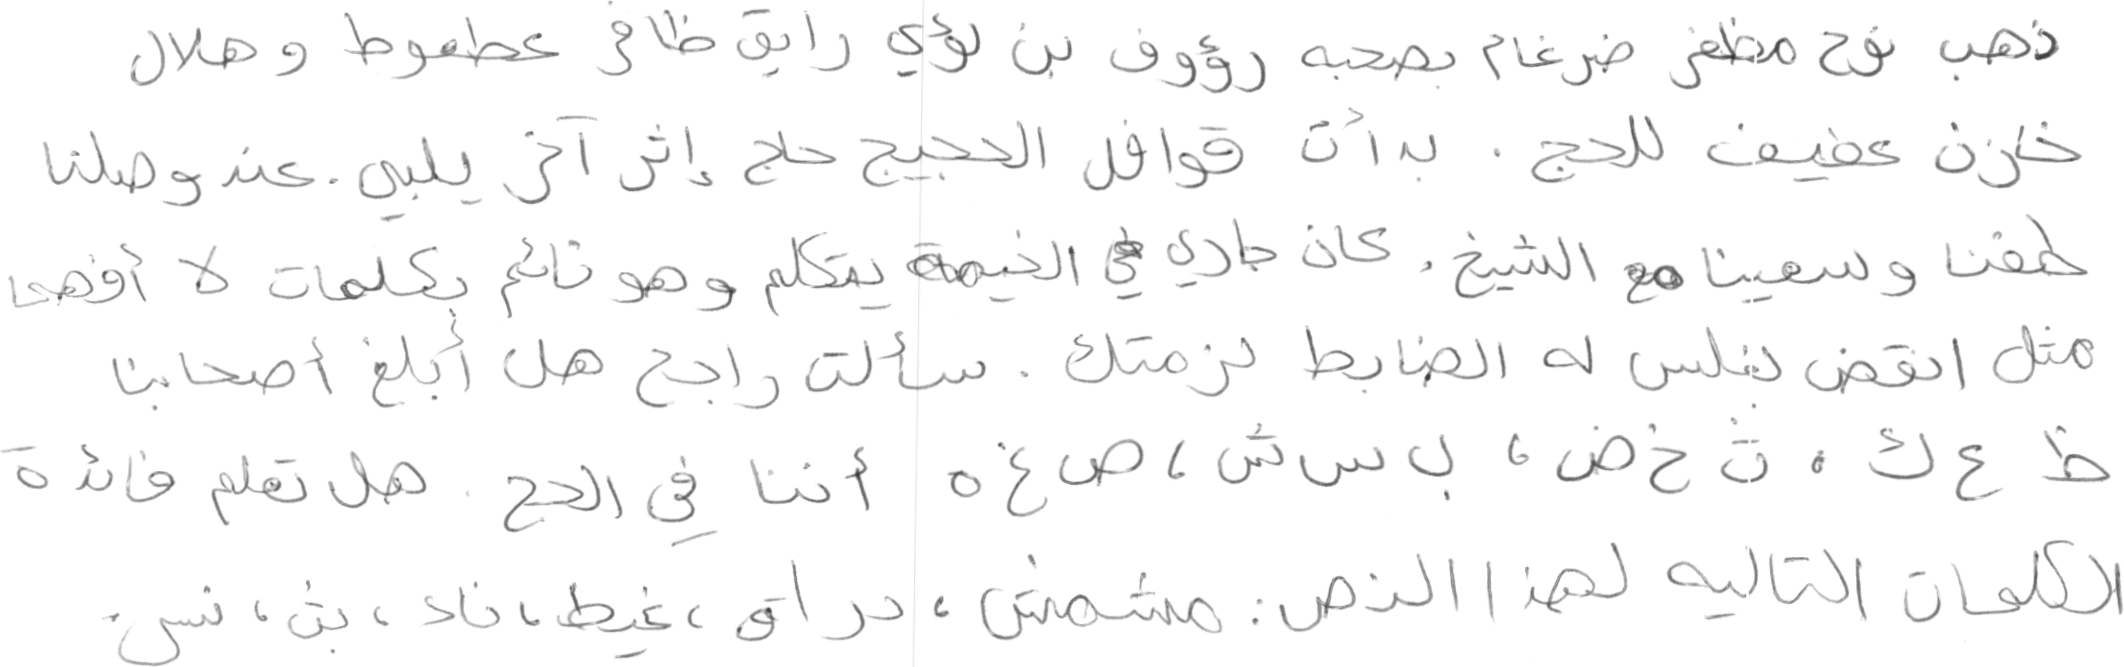 ذهب نوح مظفر ضرغام بصحبه رؤوف بن لؤي رايق ظافر عطعوط و هلال
خازن عفيف للحج . بدأت قوافل الحجيج حاج إثر آخر يلبي . عند وصلنا
طفنا و سعينا مع الشيخ . كان جاري في الخيمة يتكلم وهو نائم بكلمات لا أفهمها
مثل انقض نفلس له الضابط لزمتك . سألت راجح هل أبلغ أصحابنا
ظ ع ك ، ث خ ض ، ب س ش ، ص غ ه أننا في الحج . هل تعلم فائدة
الكلمات التاليه لهذا النص : مشمش ، دراق ، غيط ، ناد ، بث ، نس .